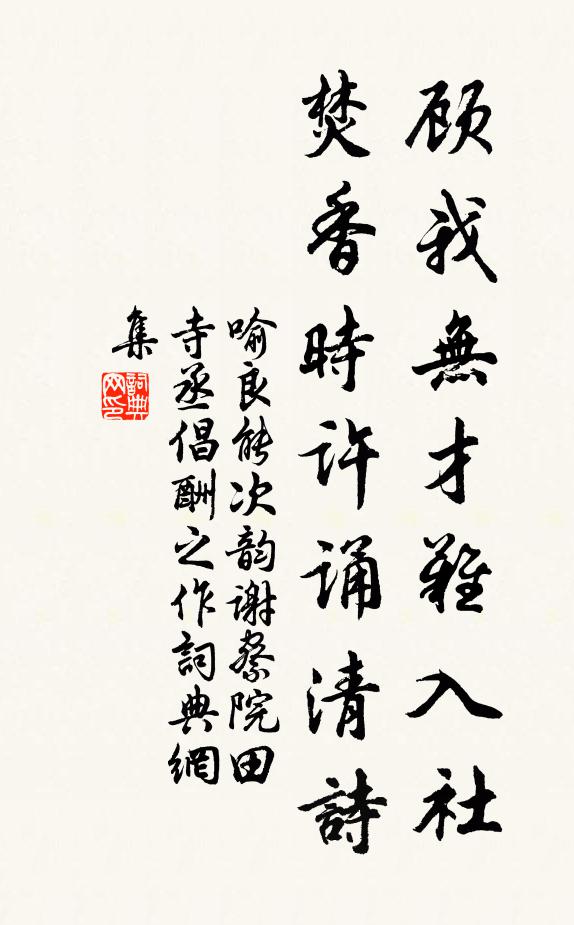 顾我無才難入社
焚香時许诵清詩
喻良能次韵谢察院田
寺丞倡酬之作詞典網
集
詞典网印